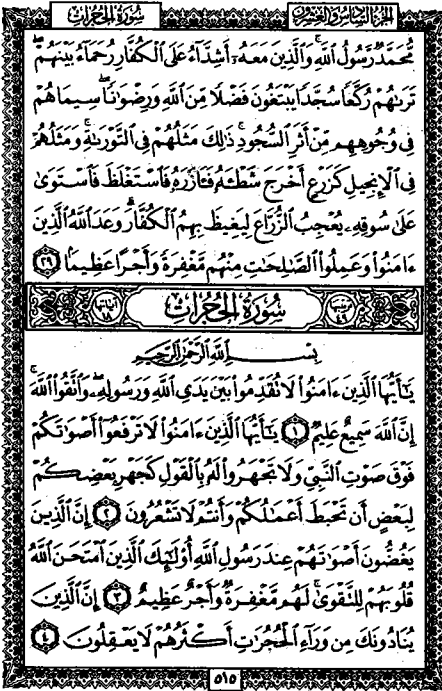 الجزء السادس والعشرون
سورة الحجرات
مُّحَمَّدٌ رَّسُولُ ٱللَّهِ وَٱلَّذِينَ مَعَهُۥٓ أَشِدَّآءُ عَلَى ٱلْكُفَّارِ رُحَمَآءُ بَيْنَهُمْ
تَرَىٰهُمْ رُكَّعًا سُجَّدًا يَبْتَغُونَ فَضْلًا مِّنَ ٱللَّهِ وَرِضْوَٰنًا سِيمَاهُمْ
فِى وُجُوهِهِم مِّنْ أَثَرِ ٱلسُّجُودِ ذَٰلِكَ مَثَلُهُمْ فِى ٱلتَّوْرَىٰةِ وَمَثَلُهُمْ
فِى ٱلْإِنجِيلِ كَزَرْعٍ أَخْرَجَ شَطْـَٔهُۥ فَـَٔازَرَهُۥ فَٱسْتَغْلَظَ فَٱسْتَوَىٰ
عَلَىٰ سُوقِهِۦ يُعْجِبُ ٱلزُّرَّاعَ لِيَغِيظَ بِهِمُ ٱلْكُفَّارَ وَعَدَ ٱللَّهُ ٱلَّذِينَ
ءَامَنُوا۟ وَعَمِلُوا۟ ٱلصَّٰلِحَٰتِ مِنْهُم مَّغْفِرَةً وَأَجْرًا عَظِيمًۢا ٢٩
ترتيبها ٤٩ سُورَةُ الحُجُرَاتِ آياتها ١٨
بِسْمِ ٱللَّهِ ٱلرَّحْمَٰنِ ٱلرَّحِيمِ
يَٰٓأَيُّهَا ٱلَّذِينَ ءَامَنُوا۟ لَا تُقَدِّمُوا۟ بَيْنَ يَدَىِ ٱللَّهِ وَرَسُولِهِۦ وَٱتَّقُوا۟ ٱللَّهَ
إِنَّ ٱللَّهَ سَمِيعٌ عَلِيمٌ ١ يَٰٓأَيُّهَا ٱلَّذِينَ ءَامَنُوا۟ لَا تَرْفَعُوٓا۟ أَصْوَٰتَكُمْ
فَوْقَ صَوْتِ ٱلنَّبِىِّ وَلَا تَجْهَرُوا۟ لَهُۥ بِٱلْقَوْلِ كَجَهْرِ بَعْضِكُمْ
لِبَعْضٍ أَن تَحْبَطَ أَعْمَٰلُكُمْ وَأَنتُمْ لَا تَشْعُرُونَ ٢ إِنَّ ٱلَّذِينَ
يَغُضُّونَ أَصْوَٰتَهُمْ عِندَ رَسُولِ ٱللَّهِ أُو۟لَٰٓئِكَ ٱلَّذِينَ ٱمْتَحَنَ ٱللَّهُ
قُلُوبَهُمْ لِلتَّقْوَىٰ لَهُم مَّغْفِرَةٌ وَأَجْرٌ عَظِيمٌ ٣ إِنَّ ٱلَّذِينَ
يُنَادُونَكَ مِن وَرَآءِ ٱلْحُجُرَٰتِ أَكْثَرُهُمْ لَا يَعْقِلُونَ ٤
٥١٥